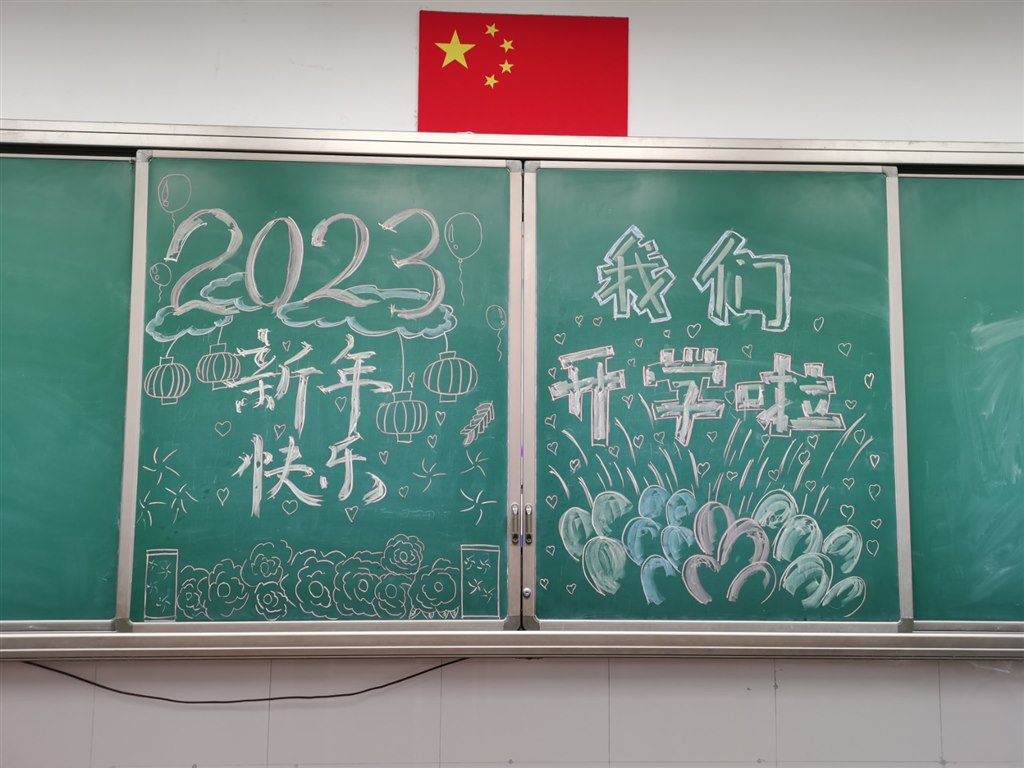 2023
新年
快乐
我们
开学啦